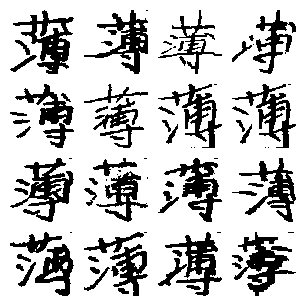 薄薄薄薄
薄薄薄薄
薄薄薄薄
薄薄薄薄